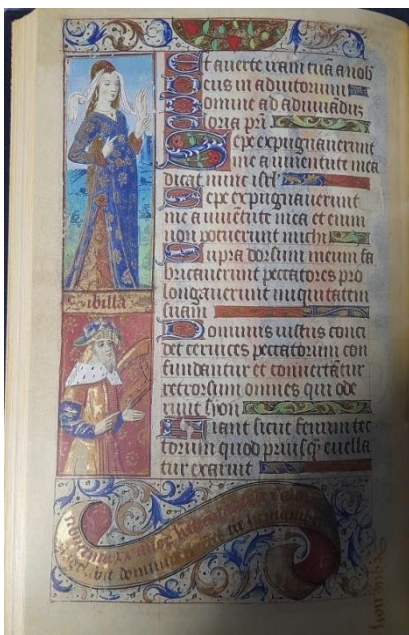 Et averte iram tuā a nob
Deus in adiutorium
Domine ad adiuvādū
Gloria pri
Sepe expugnaverunt
me a iuventute mea
dicat nunc isrl
Sepe expugnaverunt
me a iuvētute mea et enim
non potuerunt michi
Supra dorsum meum fa
bricaverunt peccatores pro
longaverunt iniquitatem
suam
Dominus iustus conci
det cervices peccatorum con
fundantur et convertātur
retrorsum omnes qui ode
runt syon
Fiant sicut fenum tec
torum quod priusq̄ evella
tur exaruit
Sibilla